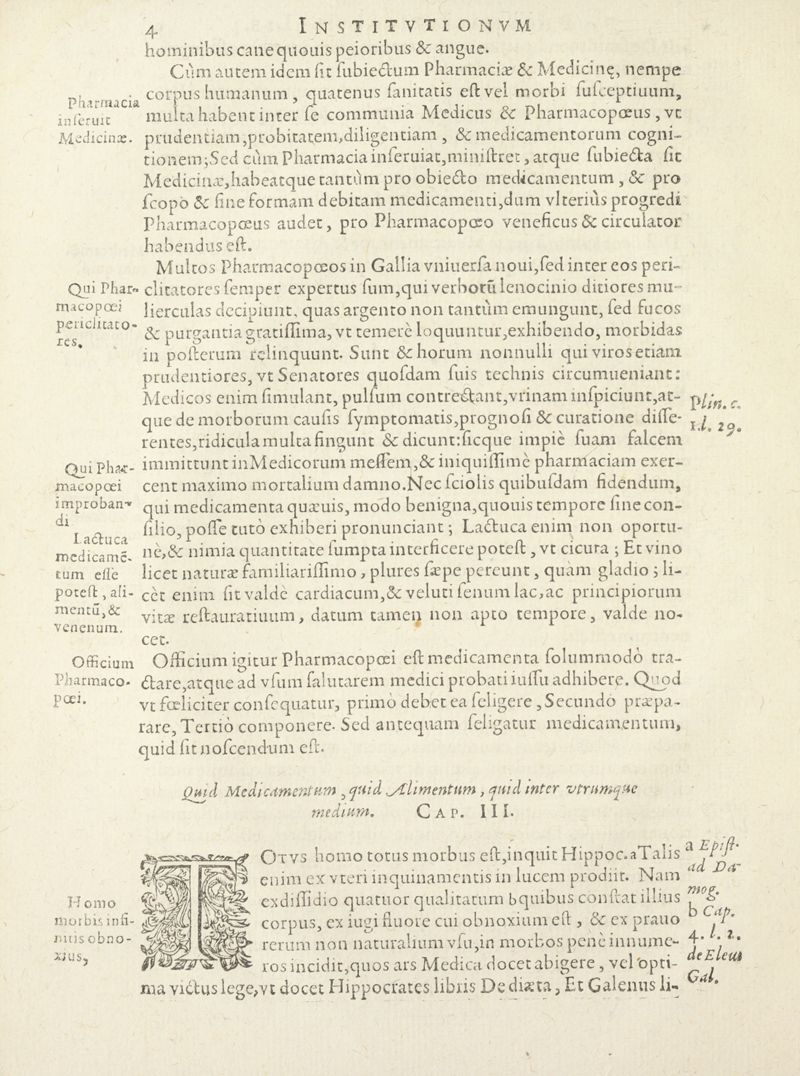 4 INSTITVTIONVM
hominibus cane quouis peioribus & angue.
Cùm autem idem ſit ſubiectum Pharmaciæ & Medicinę, nempe
corpus humanum, quatenus ſanitatis eſt vel morbi ſuſceptiuum,
multa habent inter ſe communia Medicus & Pharmacopœus, vt
prudentiam, probitatem, diligentiam, & medicamentorum cogni-
tionem; Sed cùm Pharmacia inſeruiat, miniſtret, atque ſubiecta ſit
Medicinæ, habeatque tantùm pro obiecto medicamentum, & pro
ſcopò & fine formam debitam medicamenti, dum vlteriùs progredi
Pharmacopœus audet, pro Pharmacopœo veneficus & circulator
habendus eſt.
Pharmacia
inſeruit
Medicinæ.
Multos Pharmacopœos in Gallia vniuerſa noui, ſed inter eos peri-
clitatores ſemper expertus ſum, qui verborũ lenocinio ditiores mu-
lierculas decipiunt, quas argento non tantùm emungunt, ſed fucos
& purgantia gratiſſima, vt temerè loquuntur, exhibendo, morbidas
in poſterum relinquunt. Sunt & horum nonnulli qui viros etiam
prudentiores, vt Senatores quoſdam ſuis technis circumueniant:
Medicos enim ſimulant, pulſum contrectant, vrinam inſpiciunt, at-
que de morborum cauſis ſymptomatis, prognoſi & curatione diſſe-
rentes, ridicula multa fingunt & dicunt: ſicque impiè ſuam falcem
immittunt in Medicorum meſſem, & iniquiſſimè pharmaciam exer-
cent maximo mortalium damno. Nec ſciolis quibuſdam fidendum,
qui medicamenta quæuis, modò benigna, quouis tempore ſine con-
ſilio, poſſe tutò exhiberi pronunciant; Lactuca enim non oportu-
nè, & nimia quantitate ſumpta interficere poteſt, vt cicuta; Et vino
licet naturæ familiariſſimo, plures ſæpe pereunt, quàm gladio; li-
cèt enim ſit valdè cardiacum, & veluti ſenum lac, ac principiorum
vitæ reſtauratiuum, datum tamen non apto tempore, valde no-
cet.
Qui Phar-
macopœi
periclitato-
res.
Plin. c.
1. l. 29.
Qui Phar-
macopœi
improban-
di
Lactuca
medicamē-
tum eſſe
poteſt, ali-
mentũ, &
venenum.
Officium igitur Pharmacopœi eſt medicamenta ſolummodò tra-
ctare, atque ad vſum ſalutarem medici probati iuſſu adhibere. Quod
vt fœliciter conſequatur, primò debet ea ſeligere, Secundò præpa-
rare, Tertiò componere. Sed antequam ſeligatur medicamentum,
quid ſit noſcendum eſt.
Officium
Pharmaco-
pœi.
Quid Medicamentum, quid Alimentum, quid inter vtrumque
medium. CAP. III.
TOTVS homo totus morbus eſt, inquit Hippoc. a Talis
enim ex vteri inquinamentis in lucem prodiit. Nam
ex diſſidio quatuor qualitatum b quibus conſtat illius
corpus, ex iugi fluore cui obnoxium eſt, & ex prauo
rerum non naturalium vſu, in morbos penè innume-
ros incidit, quos ars Medica docet abigere, vel opti-
ma victus lege, vt docet Hippocrates libris De diæta, Et Galenus li-
Homo
morbis infi-
nitis obno-
xius,
a Epiſt.
ad Da-
mog.
b Cap.
4. l. 2.
de Elem
Gal.